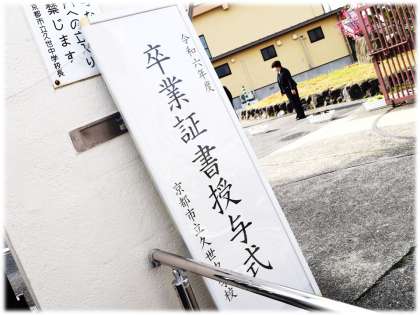 令和六年度
卒業証書授与式
京都市立久世中学校
への立入り
禁じます。
京都市立久世中学校長